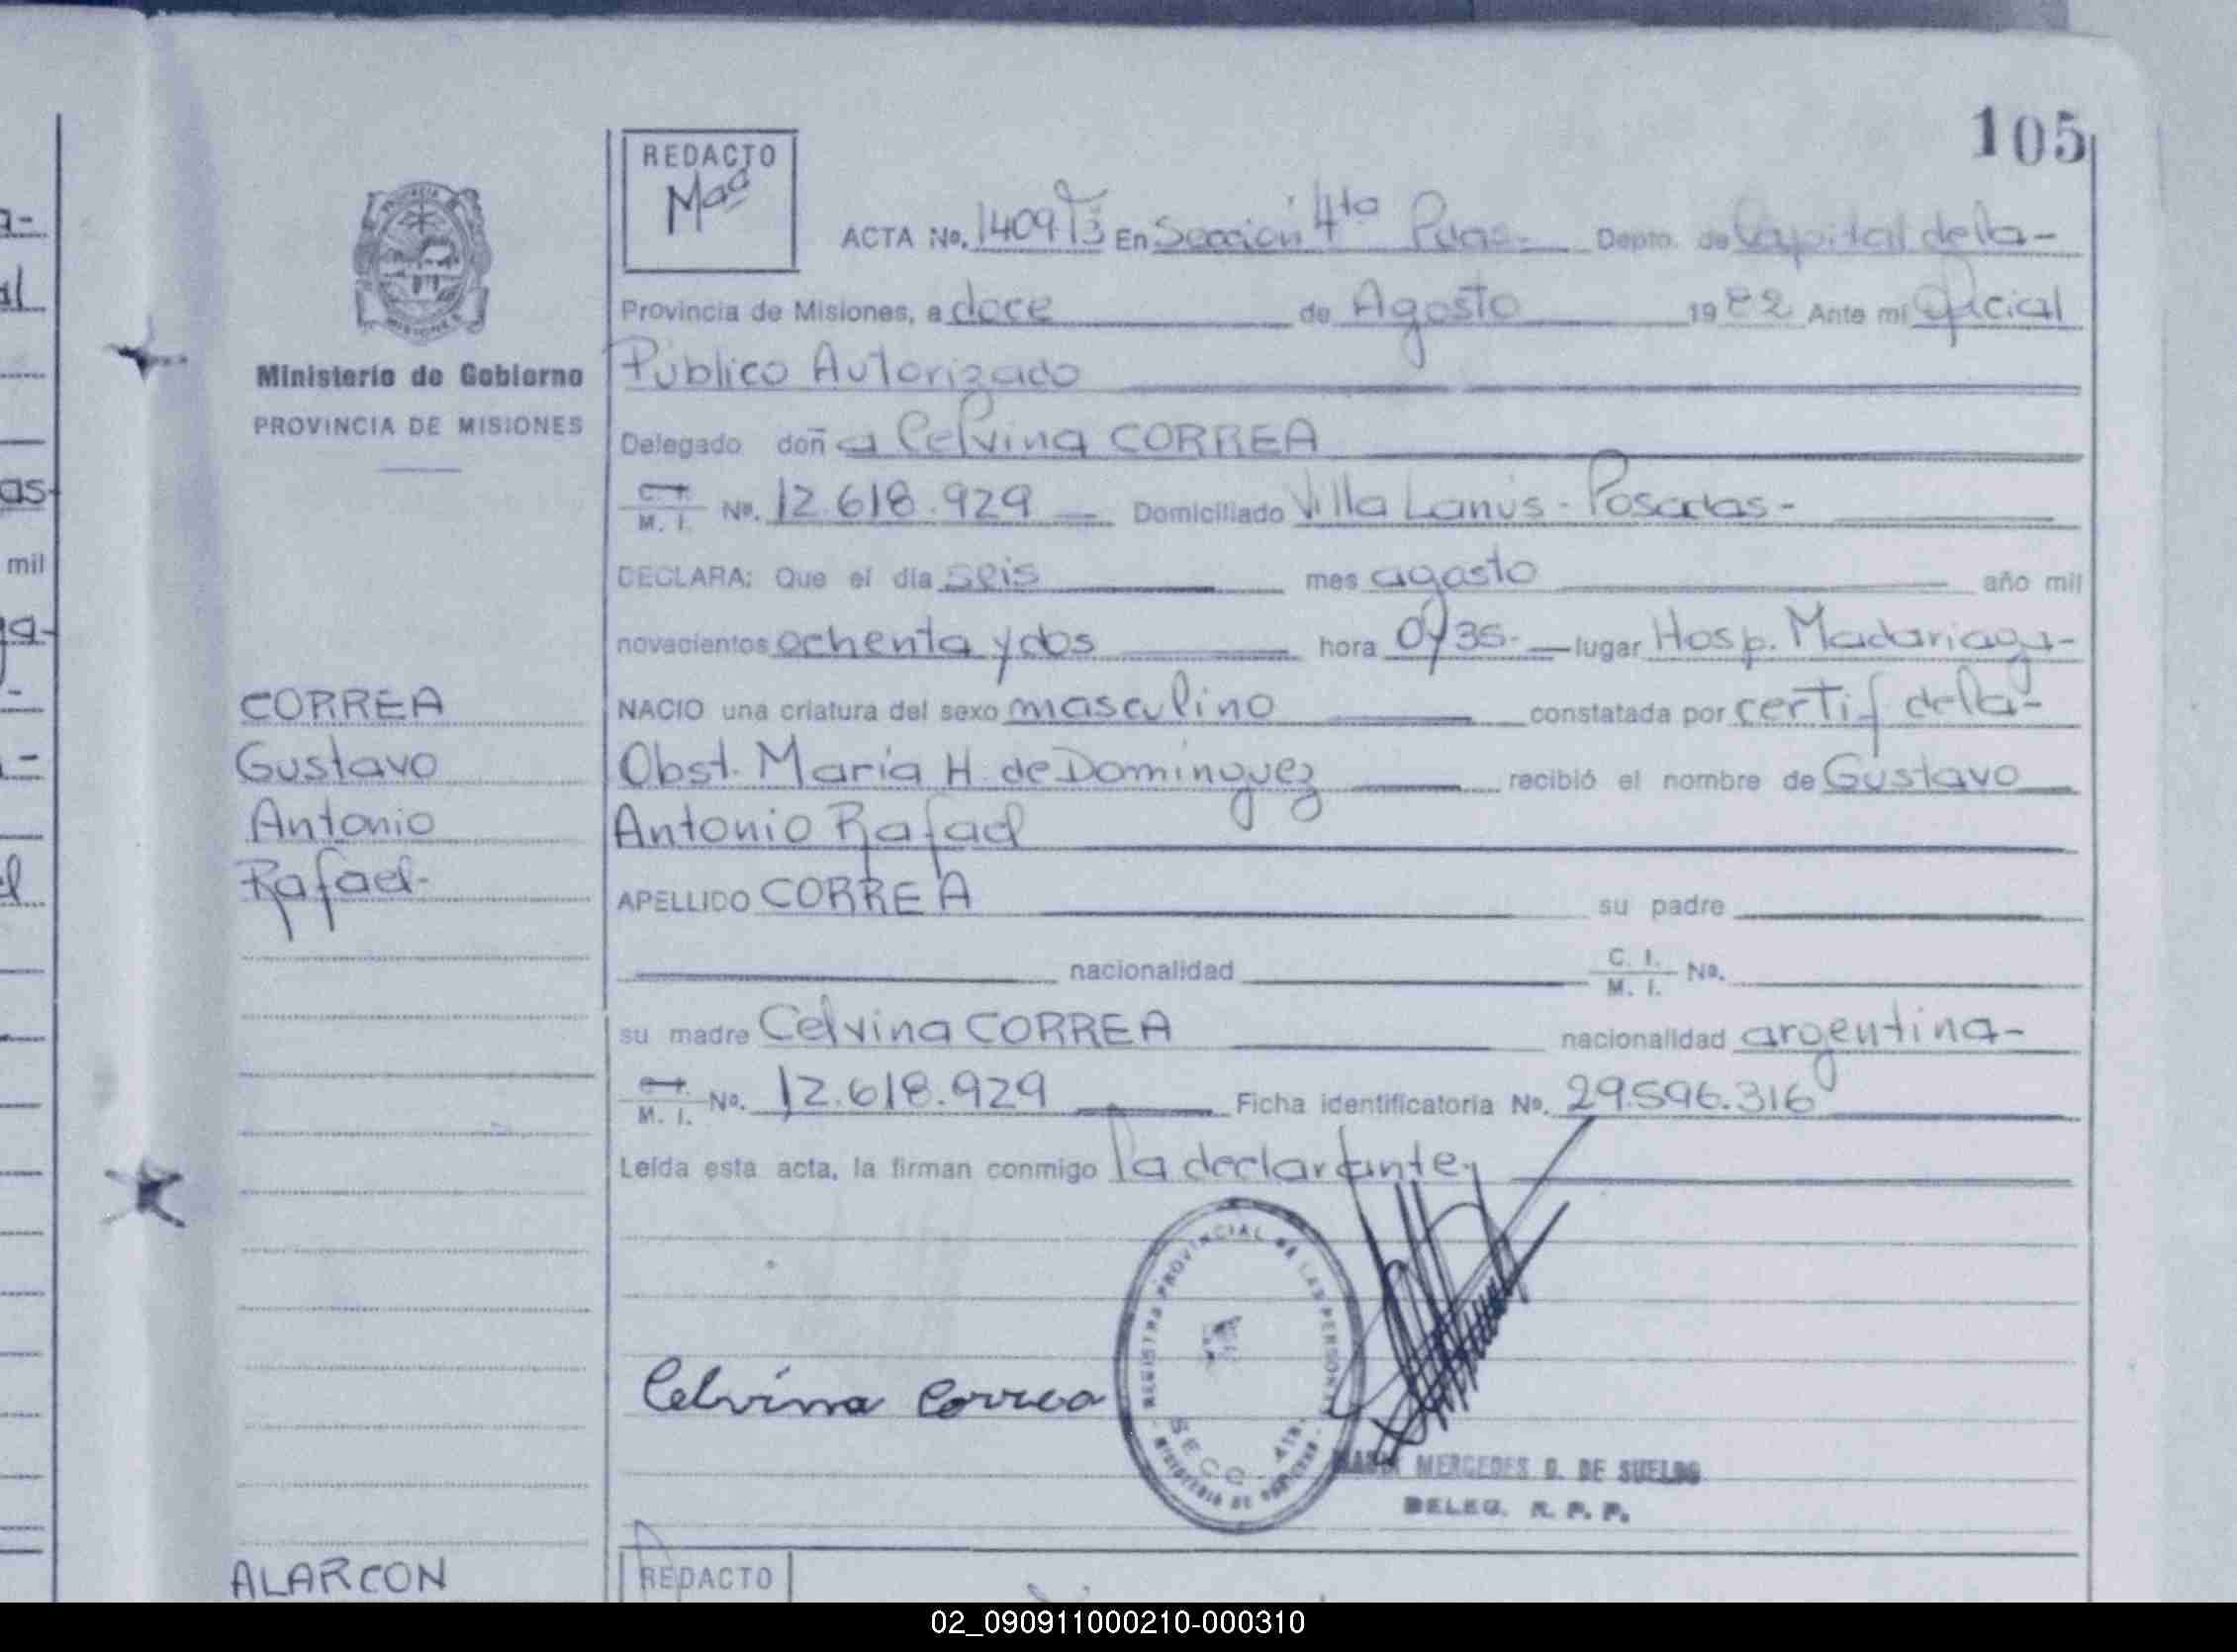 105
REDACTO
Maª
ACTA No. 1409 T3 En Sección 4ta Pdas.- Depto. de Capital de la-
Provincia de Misiones, a doce de Agosto 1982 Ante mí Oficial
Ministerio de Gobierno
Público Autorizado
PROVINCIA DE MISIONES
Delegado doña Celvina CORREA
C. I. M. I. No. 12.618.929 Domiciliado Villa Lanús - Posadas-
DECLARA: Que el día seis mes agosto año mil
novecientos ochenta y dos hora 0735.- lugar Hosp. Madariaga-
CORREA
NACIO una criatura del sexo masculino constatada por certif de la-
Gustavo
Obst. María H. de Domínguez recibió el nombre de Gustavo
Antonio
Antonio Rafael
Rafael-
APELLIDO CORREA su padre
nacionalidad C. I. M. I. No.
su madre Celvina CORREA nacionalidad argentina-
C. I. M. I. No. 12.618.929 Ficha identificatoria No. 29.596.316
Leída esta acta, la firman conmigo la declarante,
REGISTRO PROVINCIAL DE LAS PERSONAS
SECC. 4TA.
MINISTERIO DE GOBIERNO
Celvina Correa
MARIA MERCEDES G. DE SUELDO
DELEG. R. P. P.
ALARCON
REDACTO
02_090911000210-000310